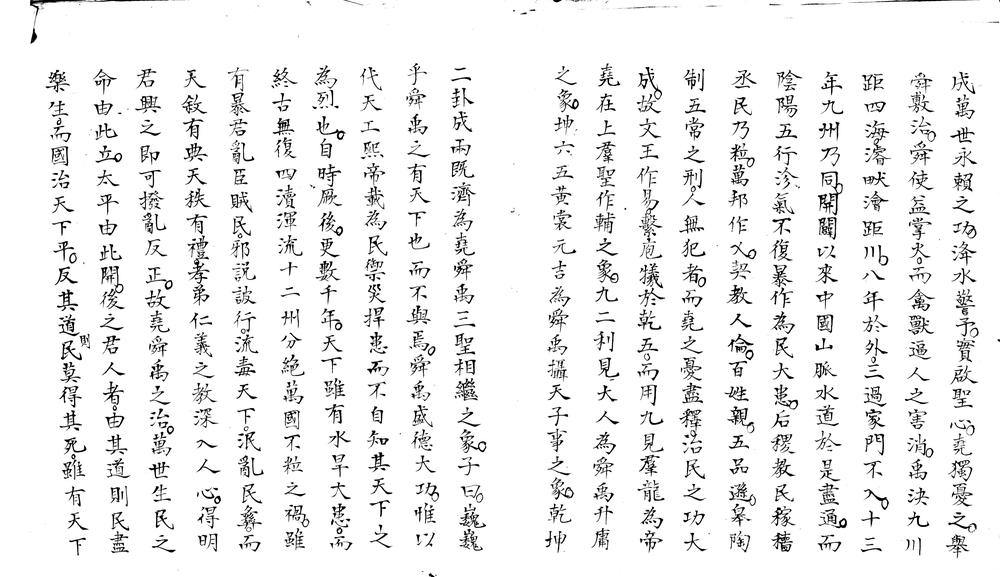 成萬世永賴之功。洚水警予。實啟聖心。堯獨憂之。舉
舜敷治。舜使益掌火。而禽獸逼人之害消。禹決九川
距四海。濬畎澮距川。八年於外。三過家門不入。十三
年九州乃同。開闢以來中國山脈水道於是盡通。而
陰陽五行沴氣不復暴作為民大患。后稷教民稼穡
烝民乃粒。萬邦作乂。契教人倫。百姓親。五品遜。皋陶
制五常之刑。人無犯者。而堯之憂盡釋。治民之功大
成。故文王作易。繫庖犧於乾五。而用九見羣龍為帝
堯在上羣聖作輔之象。九二利見大人為舜禹升庸
之象。坤六五黃裳元吉為舜禹攝天子事之象。乾坤
二卦成兩既濟為堯舜禹三聖相繼之象。子曰。巍巍
乎舜禹之有天下也而不與焉。舜禹盛德大功。惟以
代天工熙帝載為民禦災捍患而不自知其天下之
為烈也。自時厥後。更數千年。天下雖有水旱大患。而
終古無復四瀆渾流十二州分絕萬國不粒之禍。雖
有暴君亂臣賊民。邪說詖行。流毒天下。泯亂民彝。而
天敘有典天秩有禮。孝弟仁義之教深入人心。得明
君興之即可撥亂反正。故堯舜禹之治。萬世生民之
命由此立。太平由此開。後之君人者。由其道則民盡
樂生。而國治天下平。反其道則民莫得其死。雖有天下